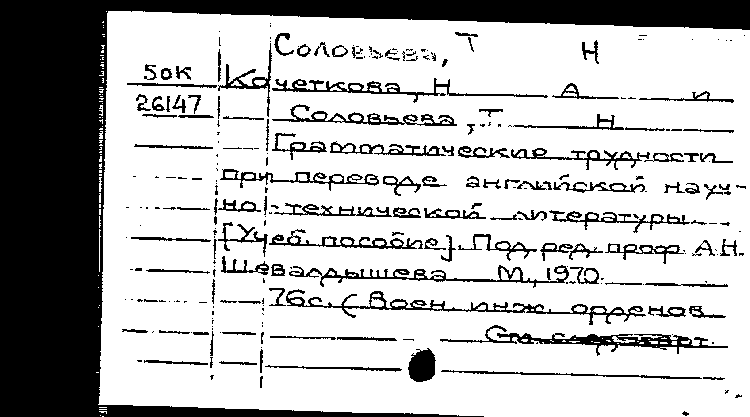 Соловьева, Т Н
50К Кочеткова, Н А и
26147 Соловьева, Т. Н
Грамматические трудности
при переводе английской науч-
но-технической литературы.
[Учеб. пособие]. Под ред. проф. А.Н.
Шевалдышева М., 1970.
76с. (Воен. инж. орденов
См. след. карт.